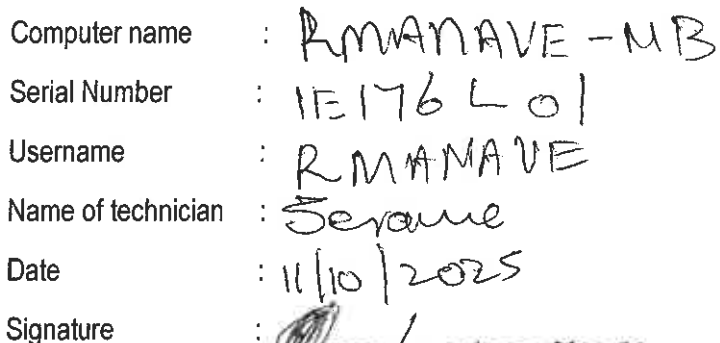 Computer name : RMANAVE-MB
Serial Number : 1E176L01
Username : RMANAVE
Name of technician : Serame
Date : 11/10/2025
Signature :